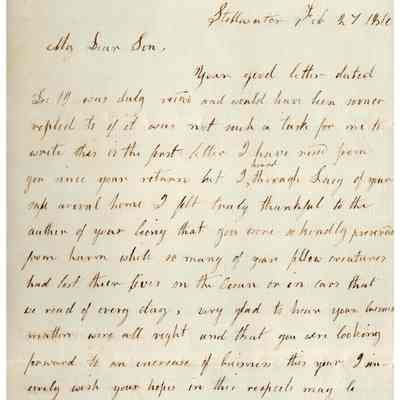 Stillwater Feb 27 18
My Dear Son,
Your good letter dated
Dec 19 was duly recvd and would have been sooner
replied to if it was not such a task for me to
write this is the first letter I have recvd from
you since your return but I heard through Lucy of your
safe arrival home I felt truly thankful to the
author of your being that you were so kindly preserved
from harm while so many of your fellow creatures
had lost their lives on the Ocean or in cars that
we read of every day, very glad to hear your business
matters were all right and that you were looking
forward to an increase of buisness this year I sin
cerely wish your hopes in this respects may be